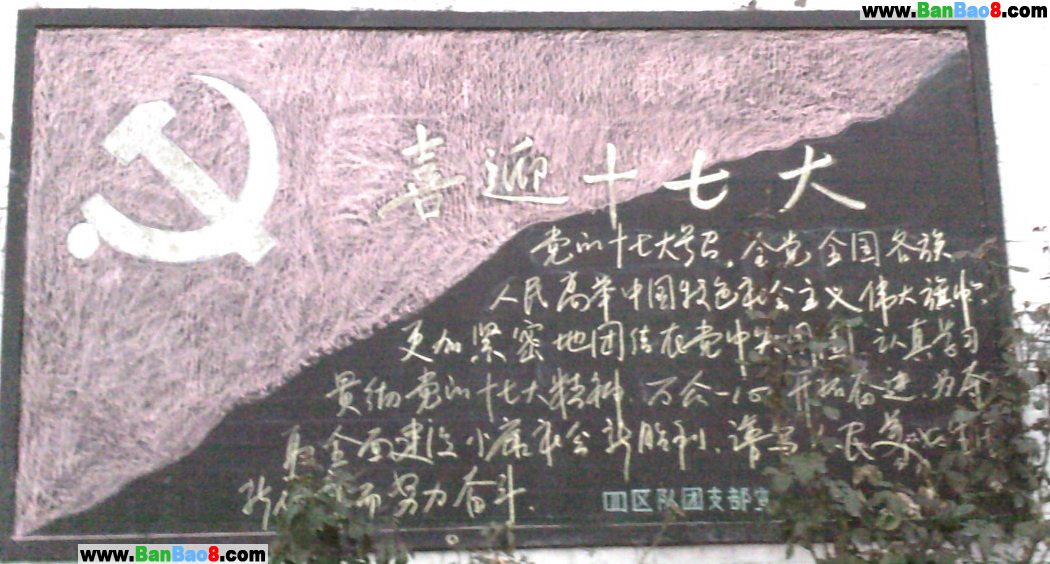 www.BanBao8.com
喜迎十七大
党的十七大号召,全党全国各族
人民高举中国特色社会主义伟大旗帜、
更加紧密地团结在党中央周围 认真学习
贯彻党的十七大精神、万众一心 开拓奋进、为夺
取全面建设小康社会新胜利、谱写人民美好生活
新 而努力奋斗.
四区队团支部宣
www.BanBao8.com